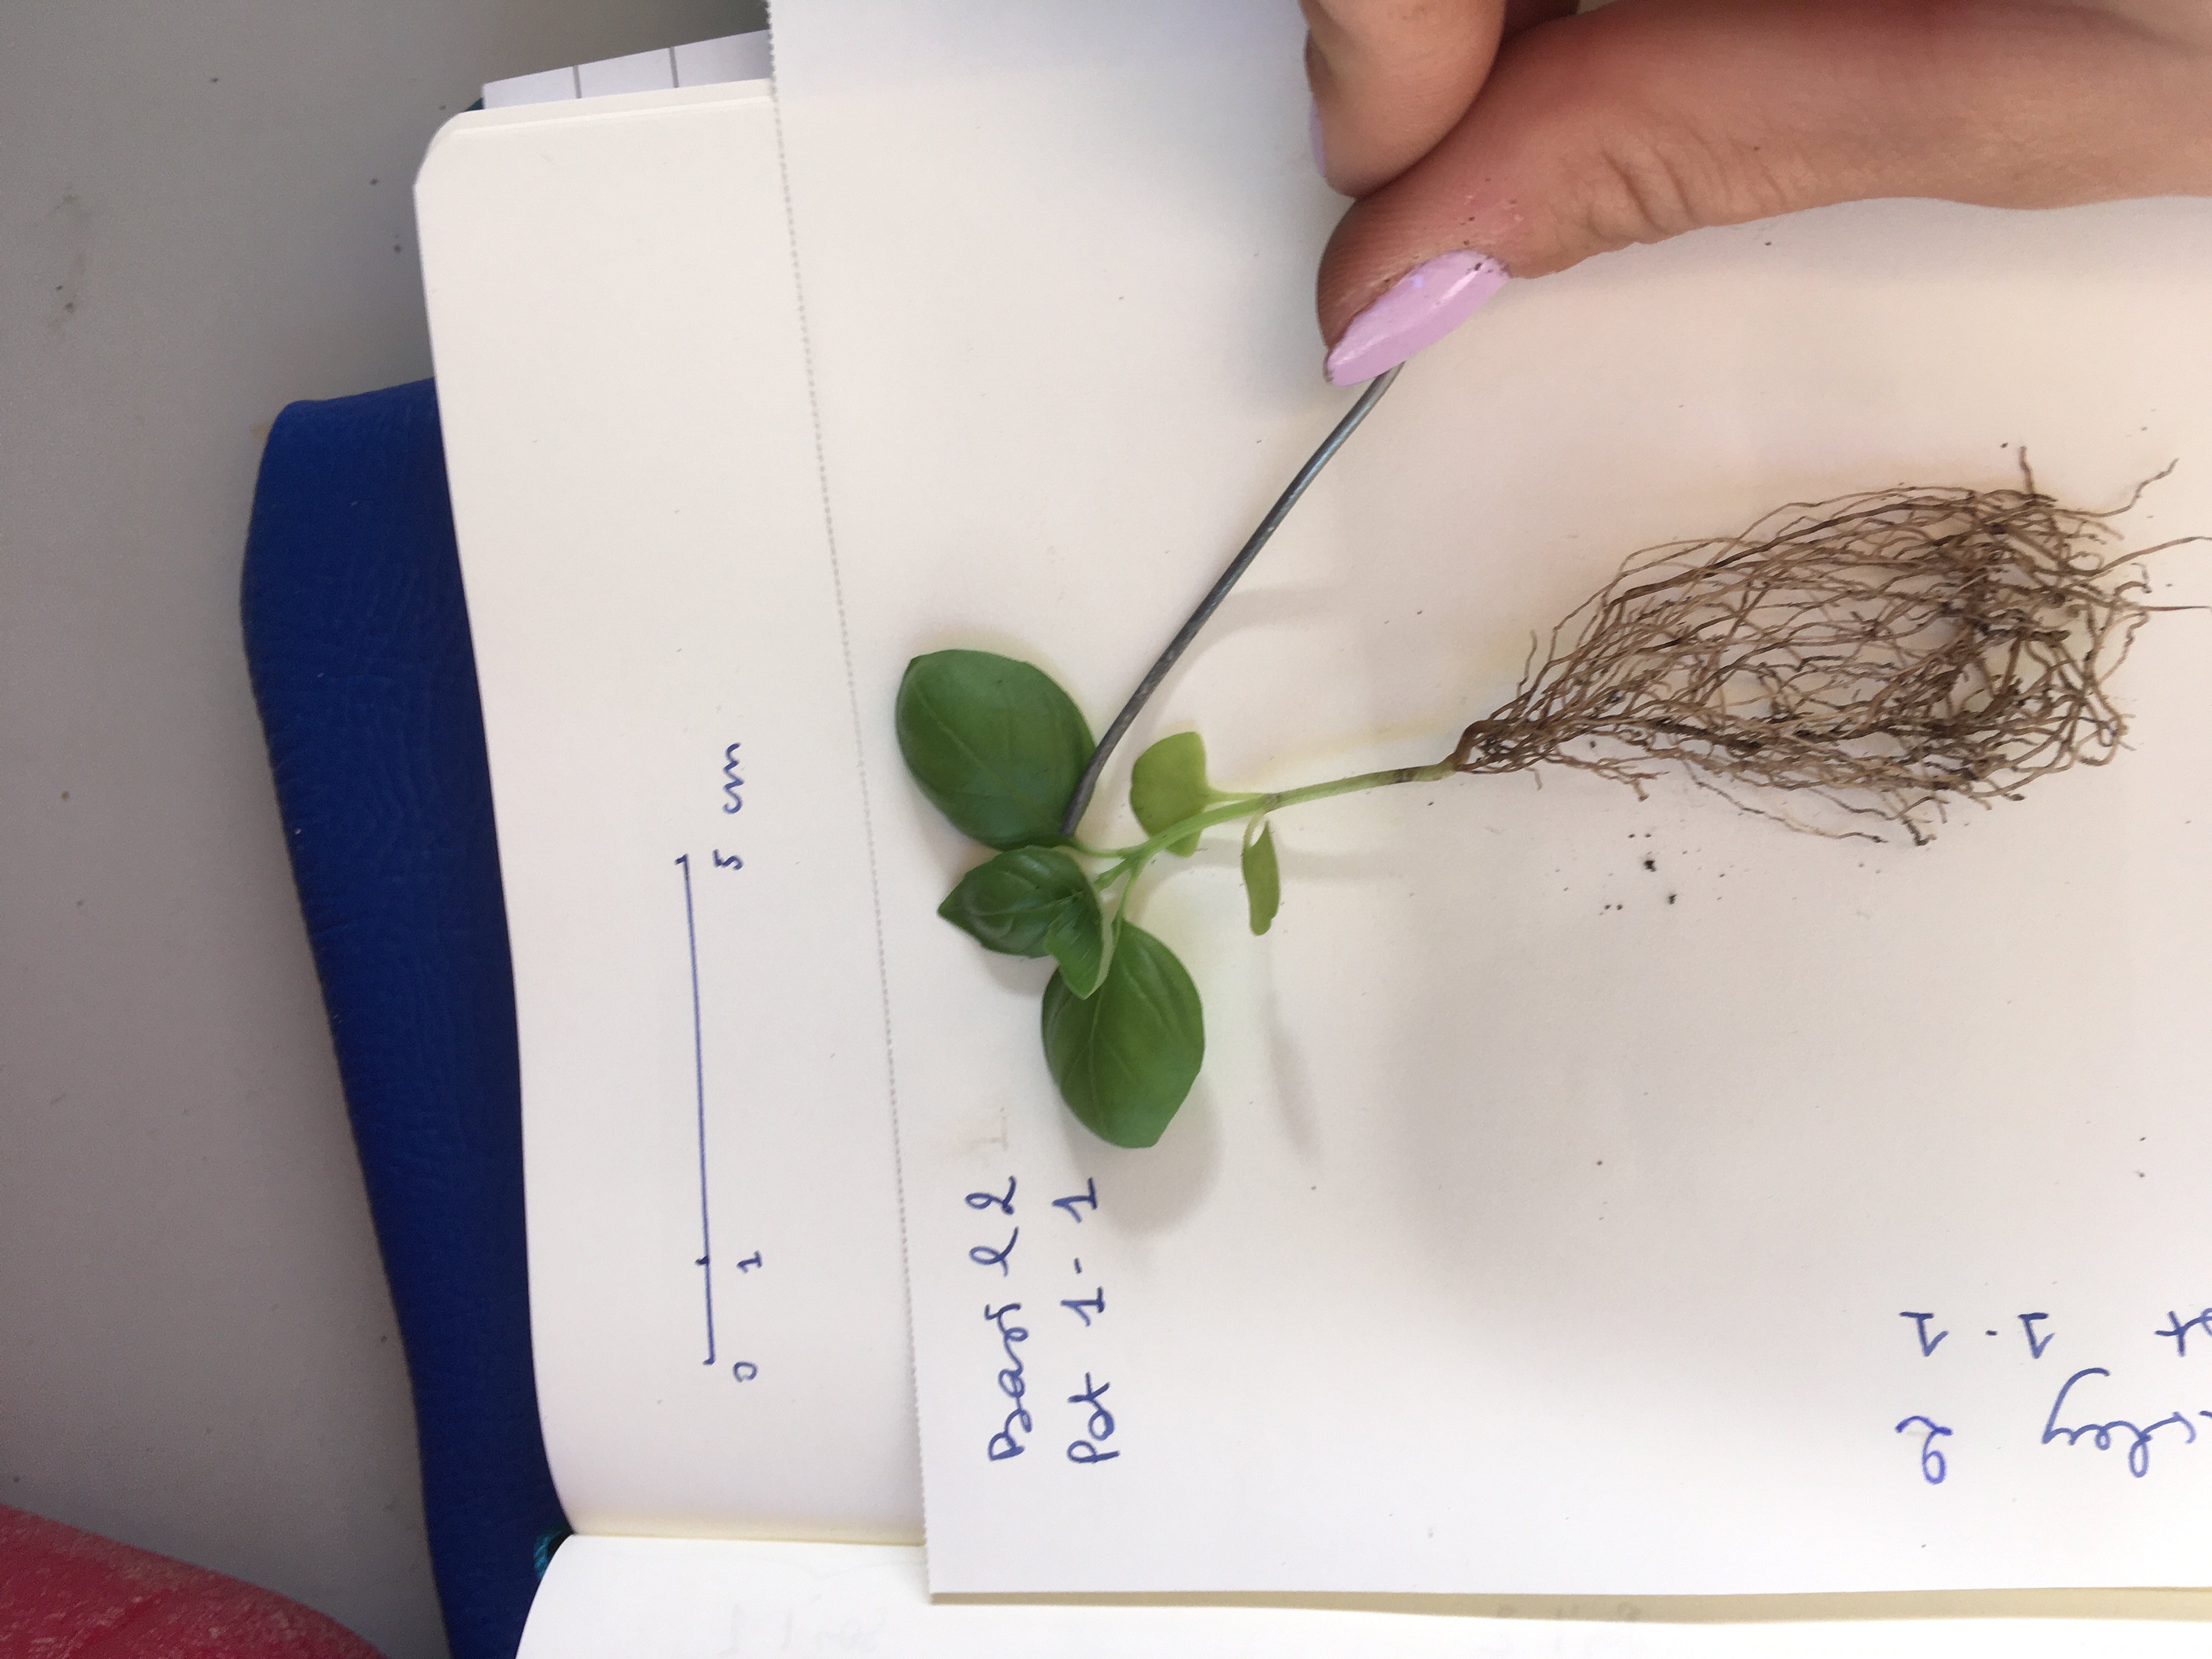 0 1 5 cm
Basil 2
Pot 1-1
2
1-1